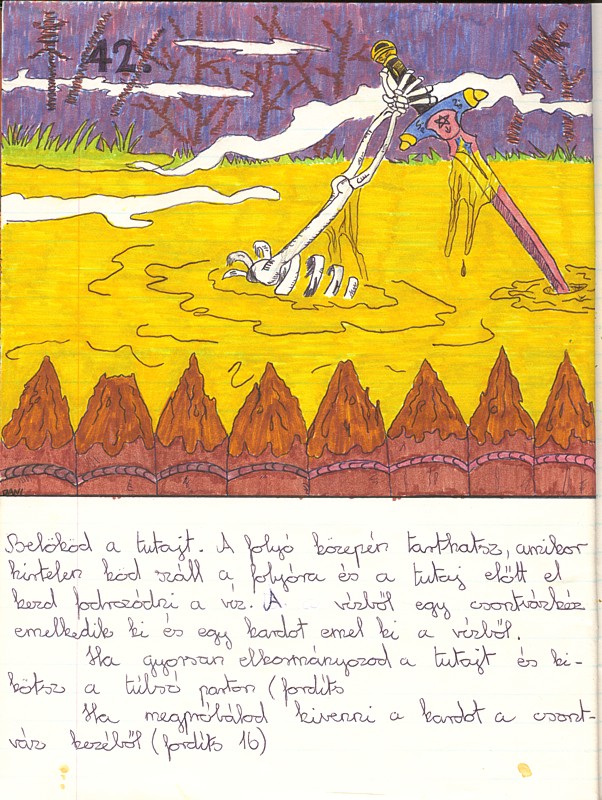 42.
DANI
Belököd a tutajt. A folyó közepén tarthatsz, amikor
hirtelen köd száll a folyóra és a tutaj előtt el
kezd fodrozódni a víz. A vízből egy csontvázkéz
emelkedik ki és egy kardot emel ki a vízből.
Ha gyorsan elkormányozod a tutajt és ki-
kötsz a túlsó parton (fordíts
Ha megpróbálod kivenni a kardot a csont-
váz kezéből (fordíts 16)